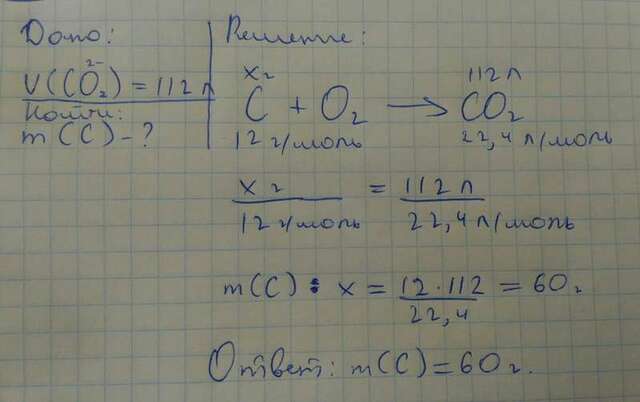 Дано:
V(CO₂²⁻) = 112 л
Найти:
m(C) - ?
Решение:
x г 112 л
C + O₂ → CO₂
12 г/моль 22,4 л/моль
x г / 12 г/моль = 112 л / 22,4 л/моль
m(C): x = 12 · 112 / 22,4 = 60 г
Ответ: m(C) = 60 г.